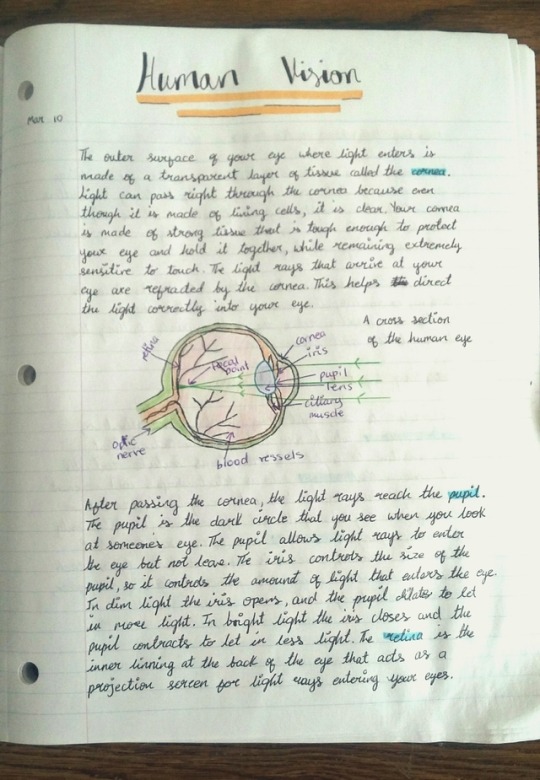 Human Vision
Mar 10
The outer surface of your eye where light enters is
made of a transparent layer of tissue called the cornea.
Light can pass right through the cornea because even
though it is made of living cells, it is clear. Your cornea
is made of strong tissue that is tough enough to protect
your eye and hold it together, while remaining extremely
sensitive to touch. The light rays that arrive at your
eye are refracted by the cornea. This helps direct
the light correctly into your eye.
A cross section
of the human eye
retina
focal
point
cornea
iris
pupil
lens
ciliary
muscle
optic
nerve
blood vessels
After passing the cornea, the light rays reach the pupil.
The pupil is the dark circle that you see when you look
at someones eye. The pupil allows light rays to enter
the eye but not leave. The iris controls the size of the
pupil, so it controls the amount of light that enters the eye.
In dim light the iris opens, and the pupil dilates to let
in more light. In bright light the iris closes and the
pupil contracts to let in less light. The retina is the
inner linning at the back of the eye that acts as a
projection screen for light rays entering your eyes.